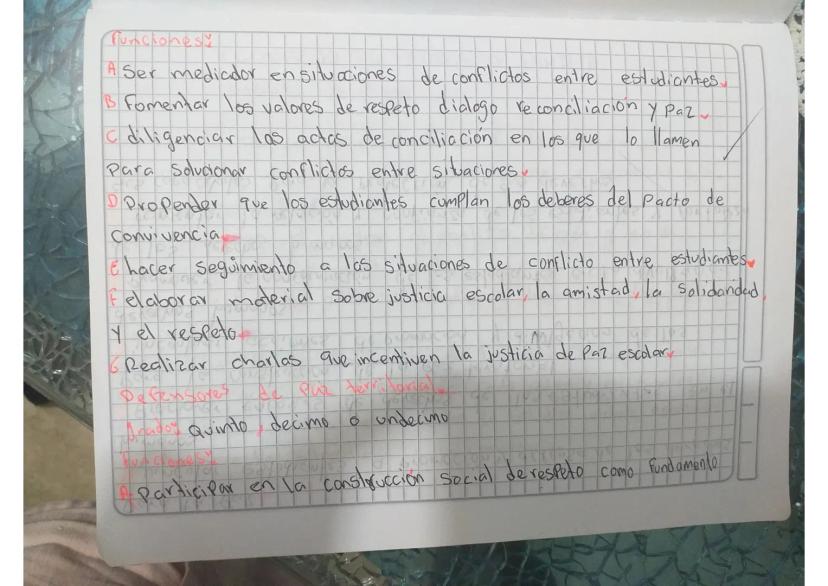 Funciones
A Ser mediador en situaciones de conflictos entre estudiantes.
B Fomentar los valores de respeto dialogo reconciliación y Paz.
C diligenciar las actas de conciliación en los que lo llamen
Para solucionar conflictos entre situaciones.
D Propender que los estudiantes cumplan los deberes del Pacto de
Convivencia.
E hacer seguimiento a las situaciones de conflicto entre estudiantes.
F elaborar material sobre justicia escolar, la amistad, la solidaridad,
y el respeto.
G Realizar charlas que incentiven la justicia de Paz escolar.
Defensores de Paz territorial.
Grados Quinto, decimo o undecimo
Funciones
A Participar en la construcción social de respeto como fundamento